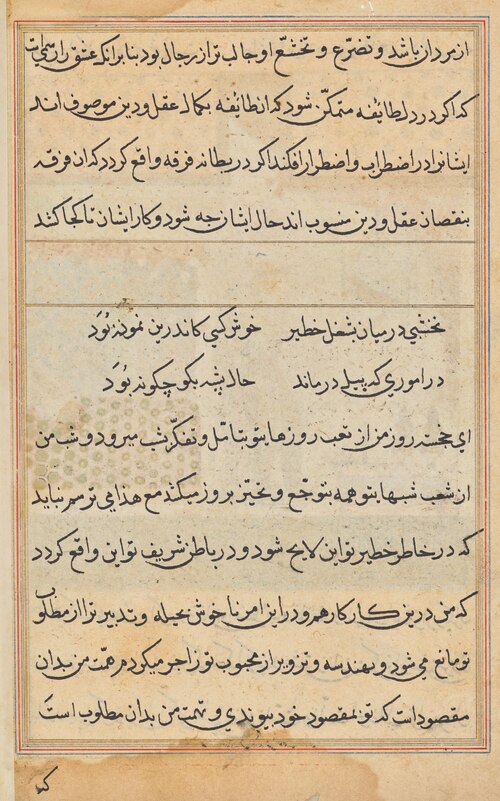 از مردان باشد و تضرّع و تخشّع او جالب تر از رجال بود بنابرانکه عشق را رسمی است
که اگر در دل طایفه متمکّن شود که ان طایفه بکمال عقل و دین موصوف اند
ایشانرا در اضطراب و اضطرار افکند اگر در بطانه فرقه واقع کردد که ان فرقه
بنقصان عقل و دین منسوب اند حال ایشان چه شود و کار ایشان تا کجا کشد
نخشبی در میان شغل خطیر خوش کسی کاندرین نمونه بُوَد
در اموری که پیل درماند حال پشه بکو چکونه بُوَد
ای خجسته روز من از تعب روزهای تو بتامّل و تفکّر شب میرود و شب من
از شعب شبهای تو همه بتوجّع و تحیّر بروز میکند مع هذا می ترسم نباید
که در خاطر خطیر تو این لایح شود و در باطن شریف تو این واقع کردد
که من درین کار کارهم و در این امر ناخوش بحیله و تدبیر ترا از مطلوب
تو مانع می شود و بهندسه و تزویر از محبوب تو زاجر میکردم همّت من بدان
مقصود است که تو بمقصود خود پیوندی و نهمت من بدان مطلوب است
که